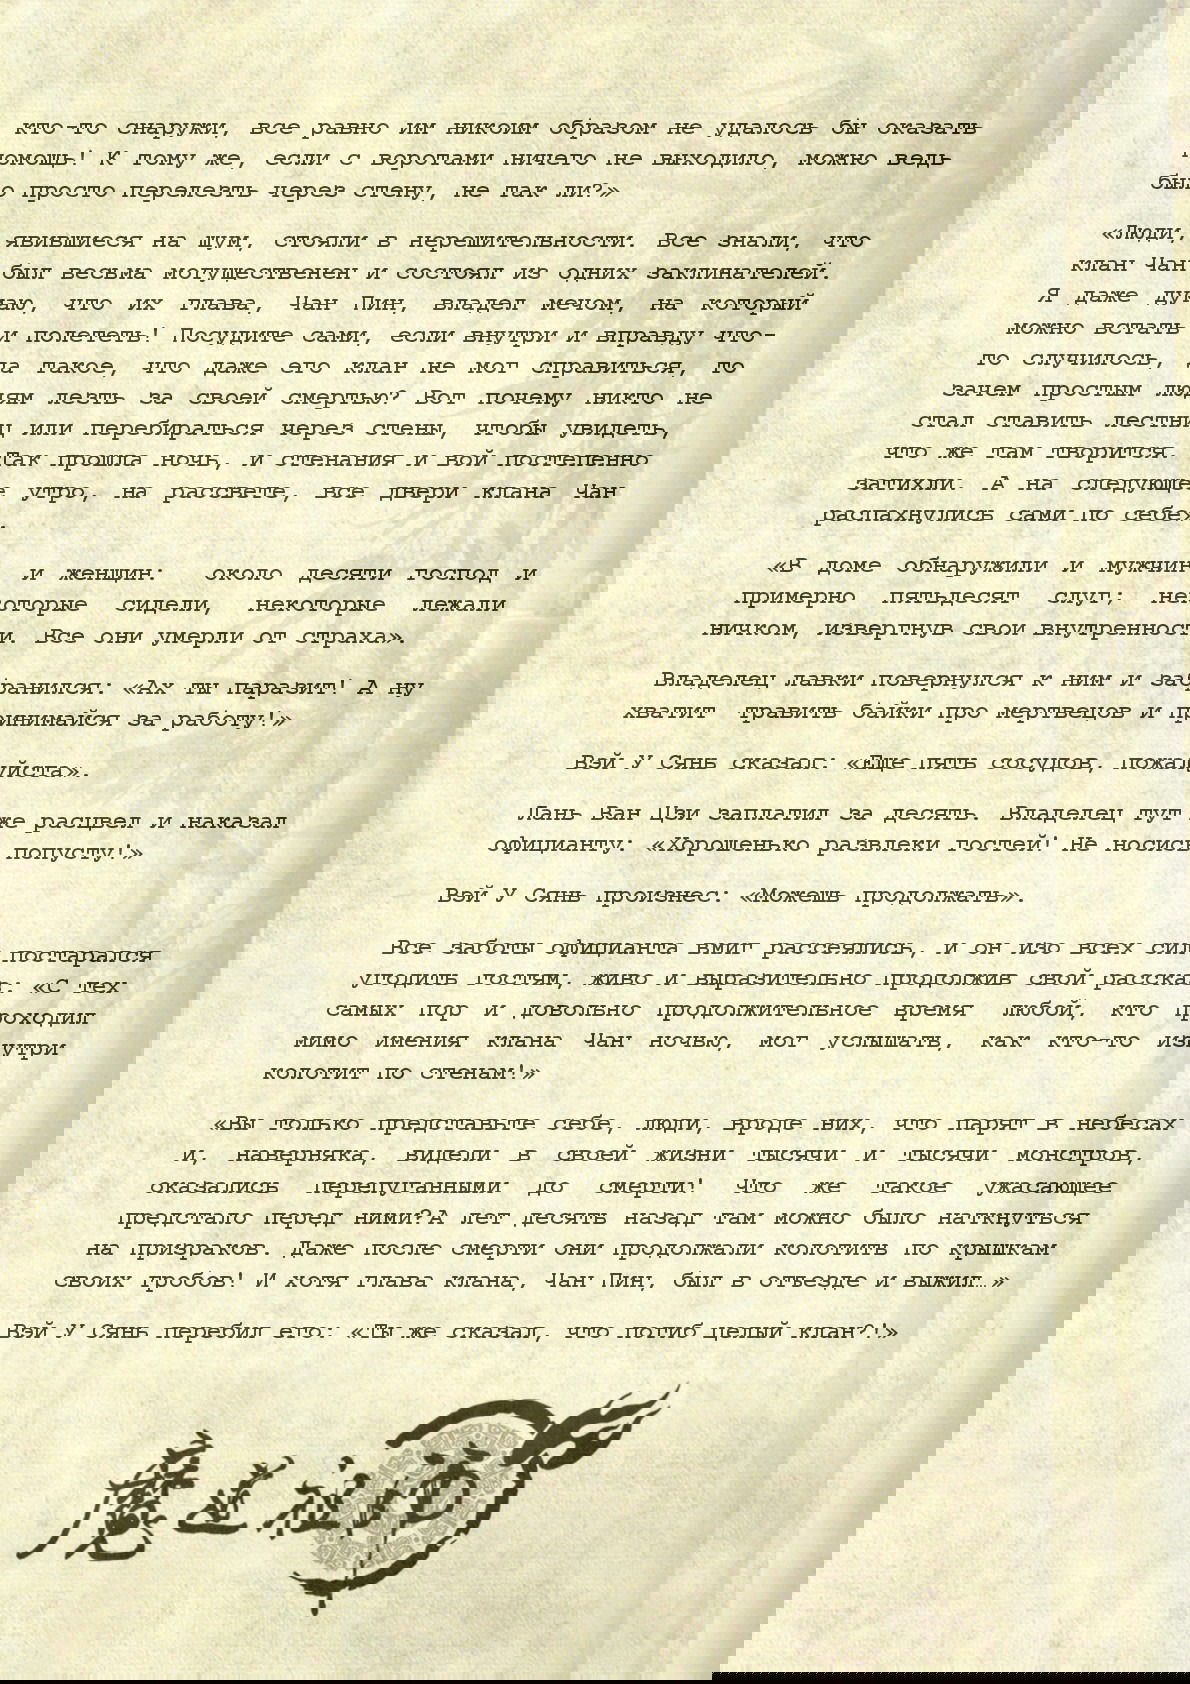 кто-то снаружи, все равно им никоим образом не удалось бы оказать
помощь! К тому же, если с воротами ничего не выходило, можно ведь
было просто перелезть через стену, не так ли?»
«Люди, явившиеся на шум, стояли в нерешительности. Все знали, что
клан Чан был весьма могущественен и состоял из одних заклинателей.
Я даже думаю, что их глава, Чан Пин, владел мечом, на который
можно встать и полететь! Посудите сами, если внутри и вправду что-
то случилось, да такое, что даже его клан не мог справиться, то
зачем простым людям лезть за своей смертью? Вот почему никто не
стал ставить лестниц или перебираться через стены, чтобы увидеть,
что же там творится. Так прошла ночь, и стенания и вой постепенно
затихли. А на следующее утро, на рассвете, все двери клана Чан
распахнулись сами по себе».
«В доме обнаружили и мужчин и женщин: около десяти господ и
примерно пятьдесят слуг; некоторые сидели, некоторые лежали
ничком, извергнув свои внутренности. Все они умерли от страха».
Владелец лавки повернулся к ним и забранился: «Ах ты паразит! А ну
хватит травить байки про мертвецов и принимайся за работу!»
Вэй У Сянь сказал: «Еще пять сосудов, пожалуйста».
Лань Ван Цзи заплатил за десять. Владелец тут же расцвел и наказал
официанту: «Хорошенько развлеки гостей! Не носись попусту!»
Вэй У Сянь произнес: «Можешь продолжать».
Все заботы официанта вмиг рассеялись, и он изо всех сил постарался
угодить гостям, живо и выразительно продолжив свой рассказ: «С тех
самых пор и довольно продолжительное время любой, кто проходил
мимо имения клана Чан ночью, мог услышать, как кто-то изнутри
колотит по стенам!»
«Вы только представьте себе, люди, вроде них, что парят в небесах
и, наверняка, видели в своей жизни тысячи и тысячи монстров,
оказались перепуганными до смерти! Что же такое ужасающее
предстало перед ними?А лет десять назад там можно было наткнуться
на призраков. Даже после смерти они продолжали колотить по крышкам
своих гробов! И хотя глава клана, Чан Пин, был в отъезде и выжил…»
Вэй У Сянь перебил его: «Ты же сказал, что погиб целый клан?!»
魔道祖师